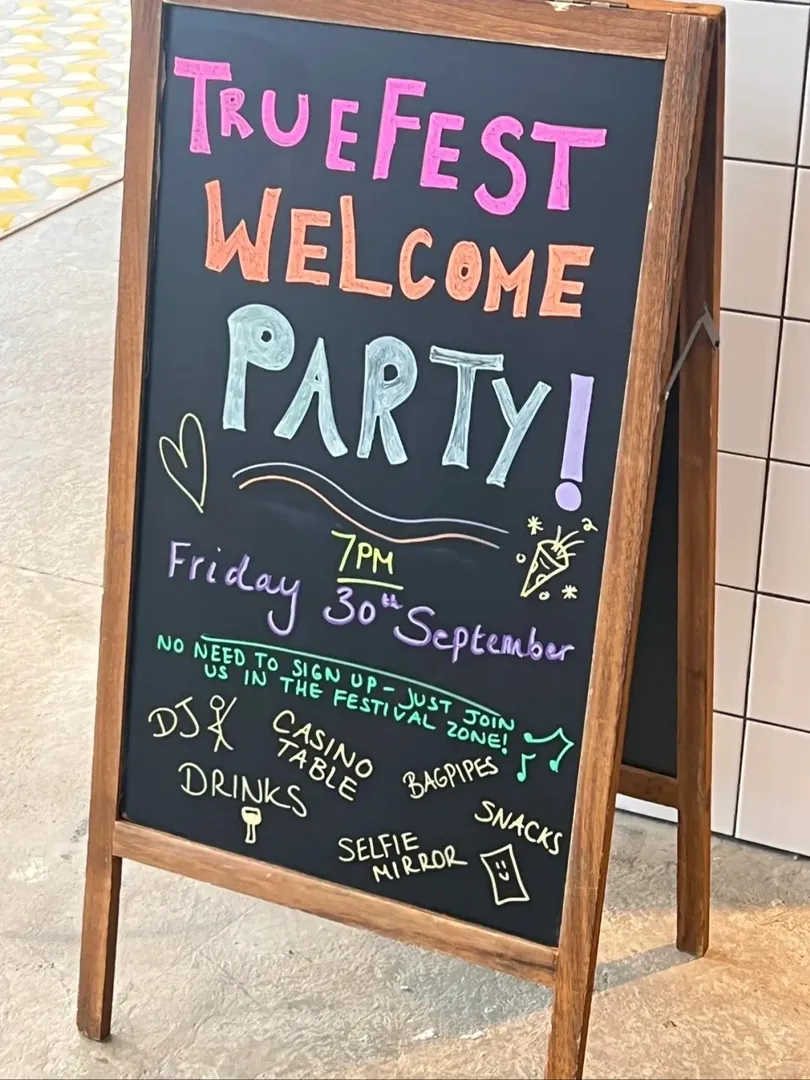 TRUEFEST
WELCOME
PARTY!
7PM
Friday 30th September
NO NEED TO SIGN UP - JUST JOIN
US IN THE FESTIVAL ZONE!
DJ
CASINO
TABLE
BAGPIPES
DRINKS
SNACKS
SELFIE
MIRROR